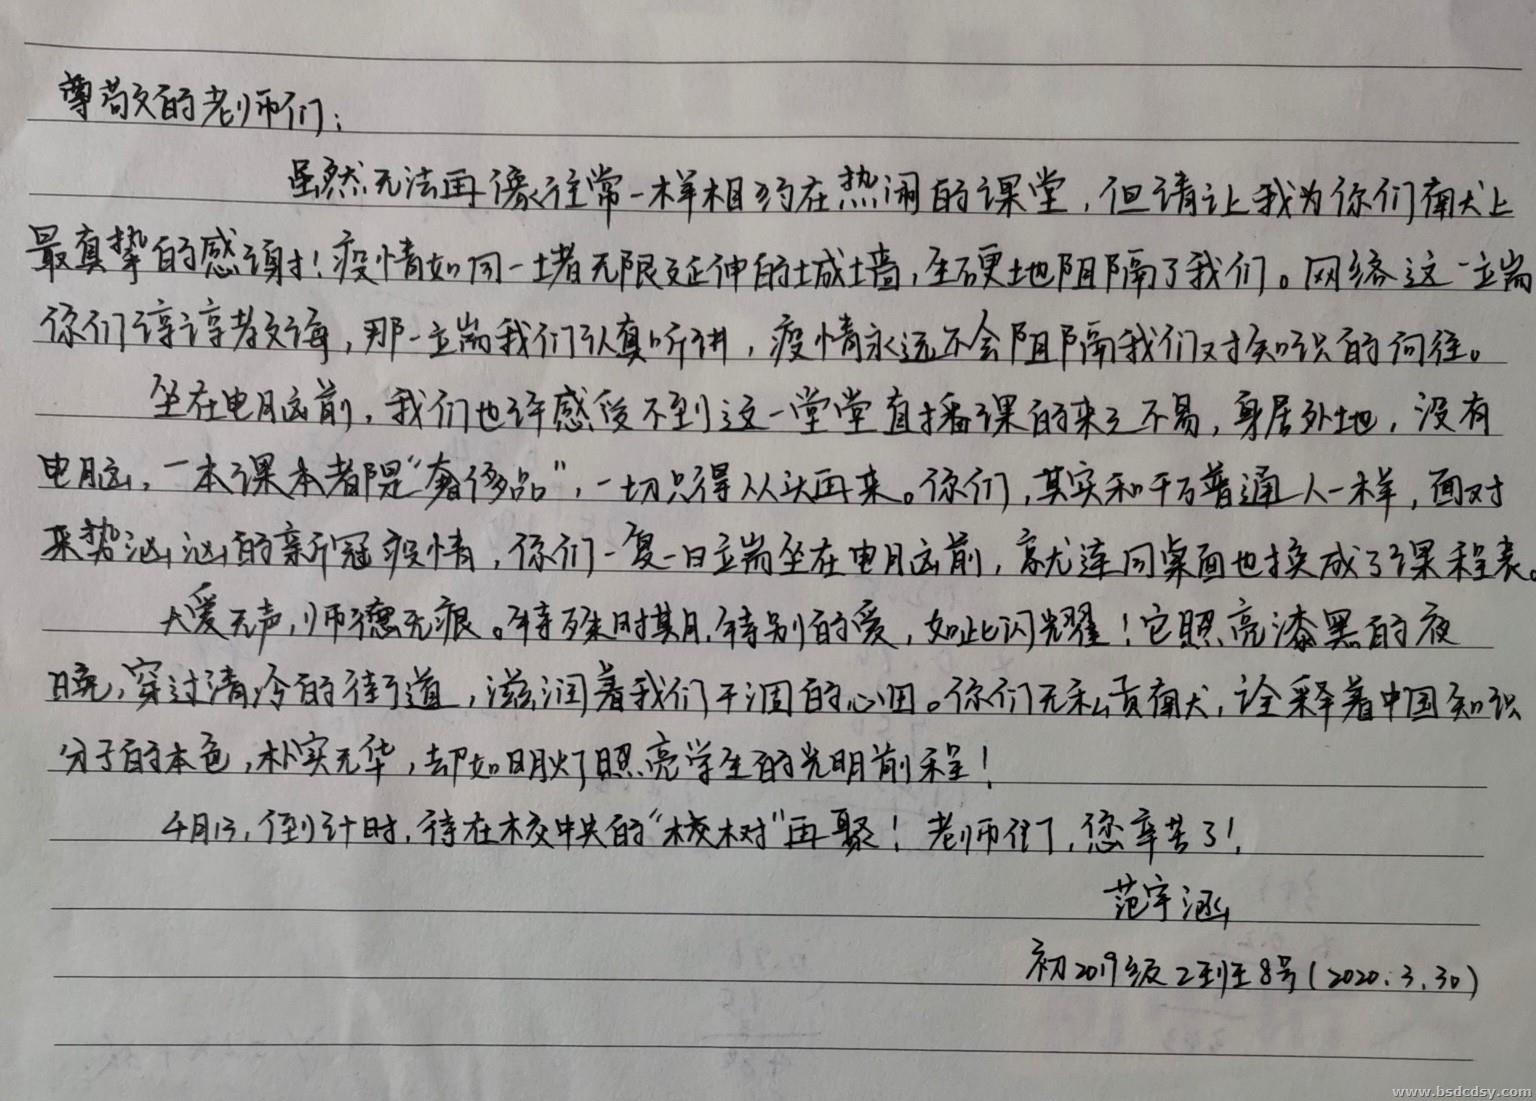 尊敬的老师们：
虽然无法再像往常一样相约在热闹的课堂，但请让我为你们献上
最真挚的感谢！疫情如同一堵无限延伸的城墙，生硬地阻隔了我们。网络这一端
你们谆谆教诲，那一端我们认真听讲，疫情永远不会阻隔我们对知识的向往。
坐在电脑前，我们也许感受不到这一堂堂直播课的来之不易，身居外地，没有
电脑，一本课本都是“奢侈品”，一切只得从头再来。你们，其实和千万普通人一样，面对
来势汹汹的新冠疫情，你们一复一日端坐在电脑前，就连同桌面也换成了课程表。
大爱无声，师德无痕。特殊时期，特别的爱，如此闪耀！它照亮漆黑的夜
晚，穿过清冷的街道，滋润着我们干涸的心田。你们无私贡献，诠释着中国知识
分子的本色，朴实无华，却如明灯照亮学生的光明前程！
4月13，倒计时，待在校中央的“校树”再聚！老师们，您辛苦了！
范宇涵
初2019级2到班8号(2020.3.30)
www.bsdcdsy.com